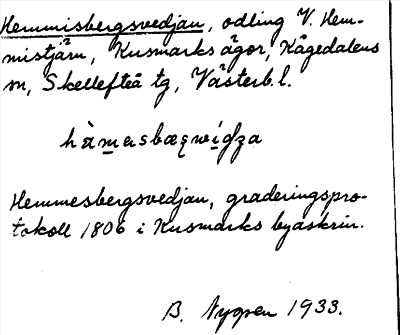 Hemmisbergsvedjan, odling V. Hem-
mistjärn, Kusmarks ägor, Kågedalens
sn, Skellefteå tg, Västerb. l.
Hemmesbergsvedjan, graderingspro-
tokoll 1806 i Kusmarks byaskrin.
B. Nygren 1933.